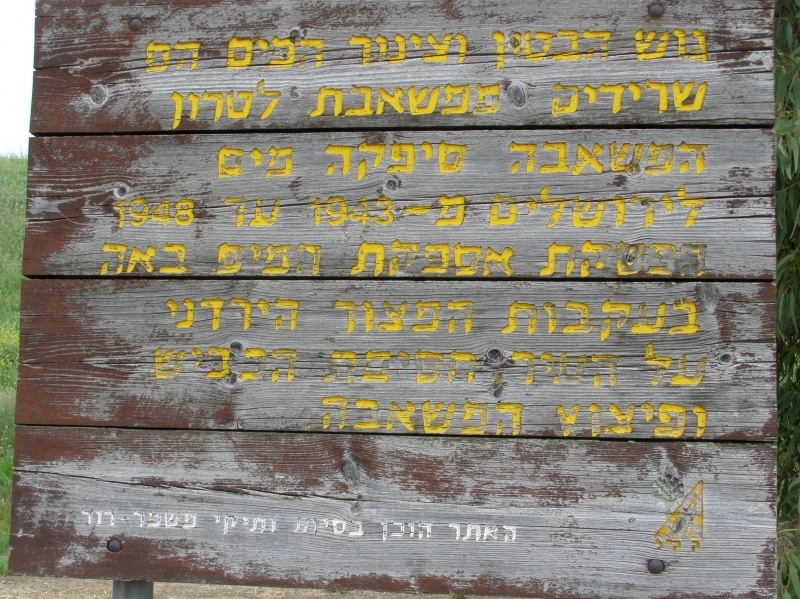 גוש הבטון וצינור המים הם
שרידים ממשאבת לטרון
המשאבה סיפקה מים
לירושלים מ-1943 עד 1948
הפסקת אספקת המים באה
בעקבות המצור הירדני
על העיר, חסימת הכביש
ופיצוץ המשאבה.
האתר הוכן בסיוע ותיקי משמר-דוד